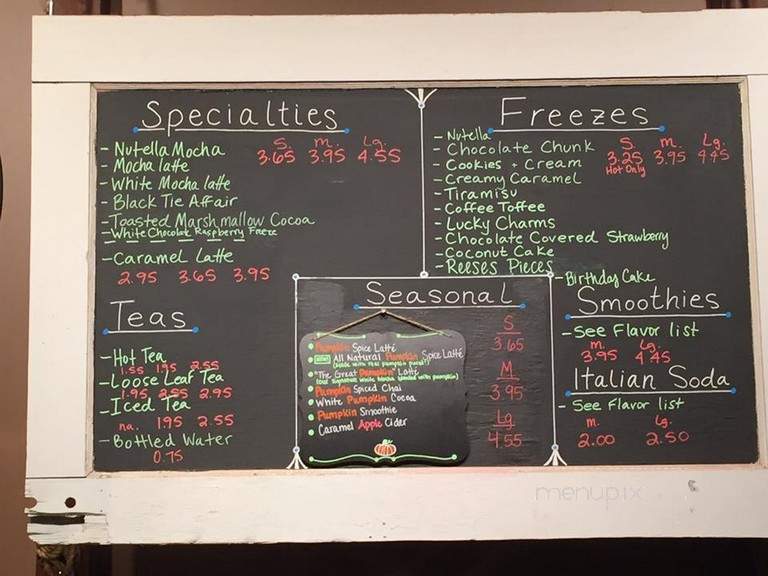 Specialties
S. m. Lg.
- Nutella Mocha 3.65 3.95 4.55
- Mocha latte
- White Mocha latte
- Black Tie Affair
- Toasted Marshmallow Cocoa
- White Chocolate Raspberry
- Caramel Latte
2.95 3.65 3.95
Teas
- Hot Tea
1.55 1.95 2.55
- Loose Leaf Tea
1.95 2.55 2.95
- Iced Tea
na. 1.95 2.55
- Bottled Water
0.75
Freezes
- Nutella
S. m. Lg.
- Chocolate Chunk 3.25 3.95 4.45
Hot Only
- Cookies + Cream
- Creamy Caramel
- Tiramisu
- Coffee Toffee
- Lucky Charms
- Chocolate Covered Strawberry
- Coconut Cake
- Reeses Pieces
- Birthday Cake
Seasonal
Pumpkin Spice Latté
All Natural Pumpkin Spice Latté
(Made with real pumpkin puree!)
"The Great Pumpkin" Latté
(our signature white mocha blended with pumpkin)
Pumpkin Spiced Chai
White Pumpkin Cocoa
Pumpkin Smoothie
Caramel Apple Cider
S
3.65
M
3.95
Lg
4.55
Smoothies
- See Flavor list
m. Lg.
3.95 4.45
Italian Soda
- See Flavor list
m. Lg.
2.00 2.50
menupix